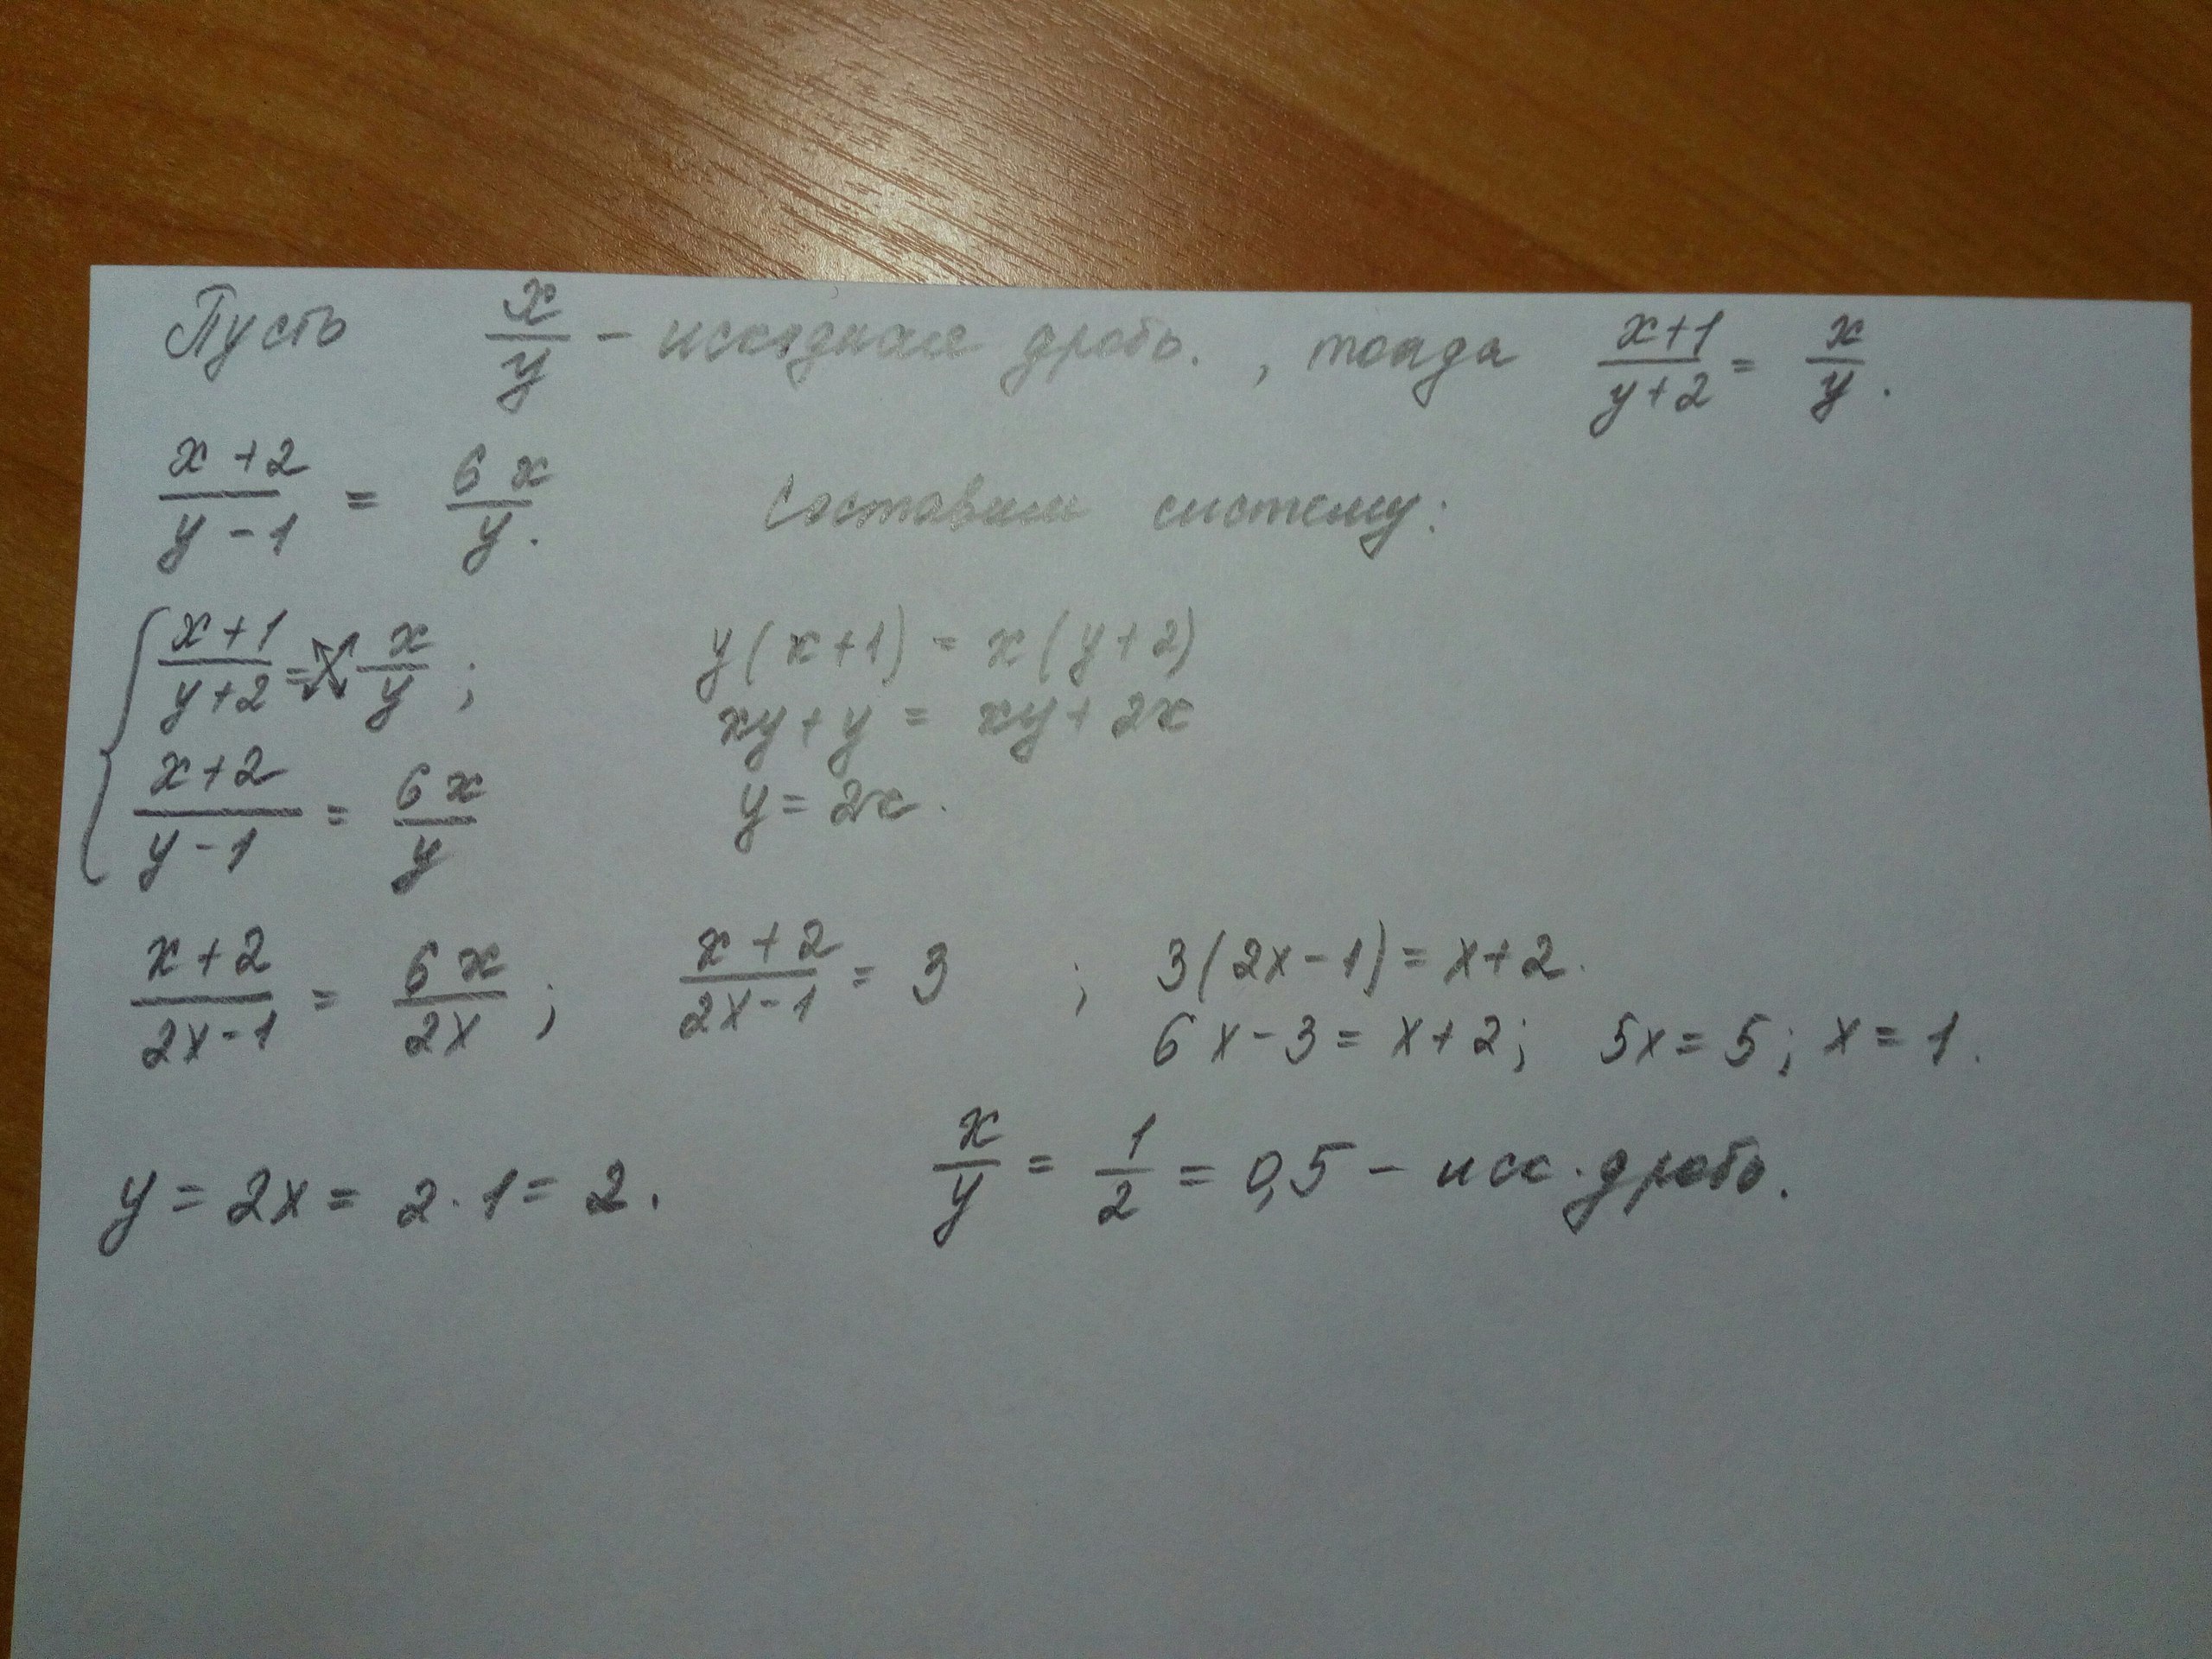 Пусть x/y - исходная дробь. , тогда (x+1)/(y+2) = x/y.
(x+2)/(y-1) = 6x/y. Составим систему:
{ (x+1)/(y+2) = x/y ; y(x+1) = x(y+2)
xy+y = xy+2x
(x+2)/(y-1) = 6x/y y = 2x.
(x+2)/(2x-1) = 6x/2x ; (x+2)/(2x-1) = 3 ; 3(2x-1) = x+2.
6x-3 = x+2; 5x = 5; x = 1.
y = 2x = 2·1 = 2. x/y = 1/2 = 0,5 - исх. дробь.